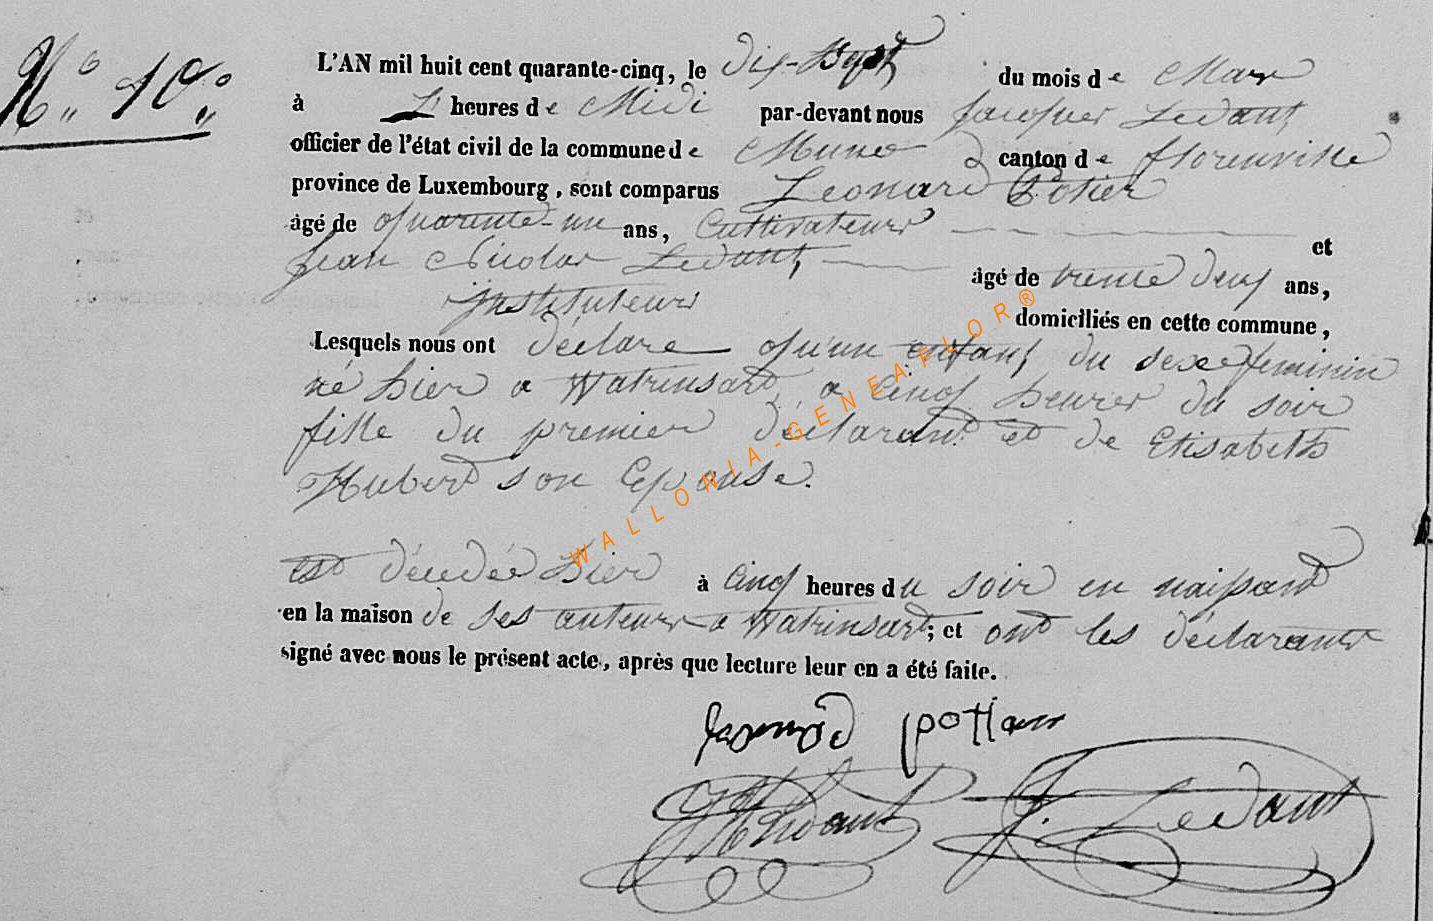 N° 10.
L'AN mil huit cent quarante-cinq, le dix-Sept du mois de Mars
à heures de Midi par-devant nous Jacques Ledant
officier de l'état civil de la commune de Muno canton de florenville
province de Luxembourg, sont comparus Leonard Potier
âgé de quarante-un ans, Cultivateur et
Jean Nicolas Ledant, âgé de trente deux ans,
instituteur domiciliés en cette commune,
Lesquels nous ont déclaré qu'un enfant du sexe feminin
né hier a Watrinsart, a cinq heures du soir
fille du premier déclarant et de Elisabeth
Hubert son Epouse.
est décédée hier à cinq heures du soir en naissant
en la maison de ses auteurs a Watrinsart; et ont les déclarants
signé avec nous le présent acte, après que lecture leur en a été faite.
Ledant
J. Ledant
WALLONIA-GENEAFLOR®